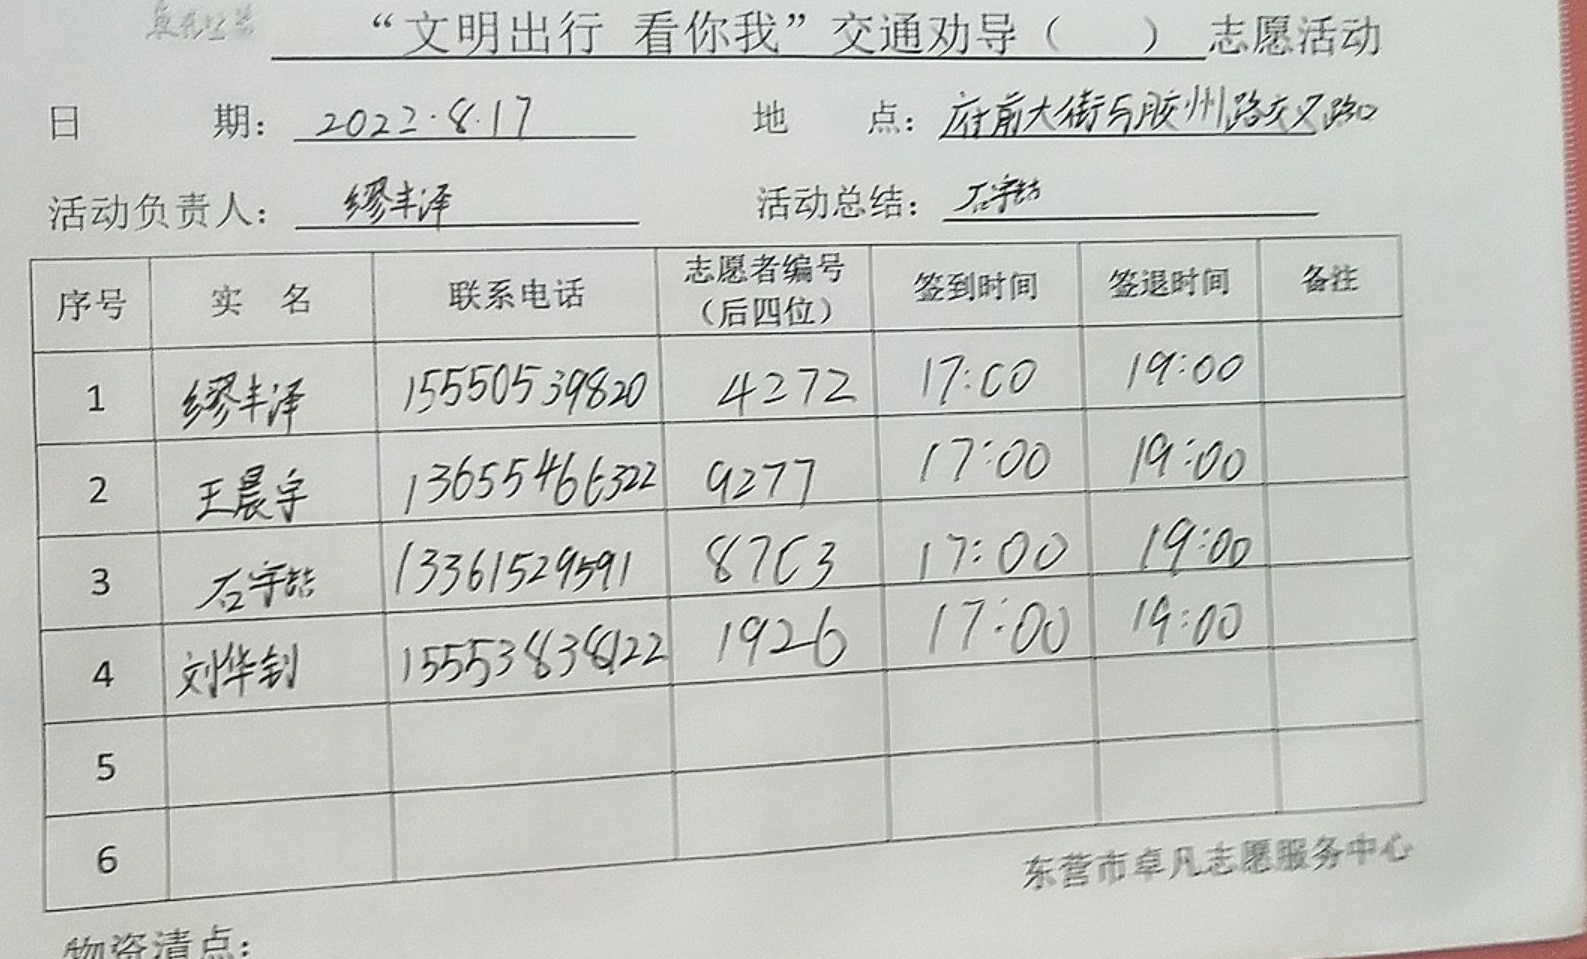 “文明出行 看你我”交通劝导（ ）志愿活动
日 期：2022.8.17 地 点：府前大街与胶州路交叉路口
活动负责人：缪丰泽 活动总结：石宇喆
序号 实 名 联系电话 志愿者编号（后四位） 签到时间 签退时间 备注
1 缪丰泽 15550539820 4272 17:00 19:00
2 王晨宇 13655466322 9277 17:00 19:00
3 石宇喆 13361529591 8703 17:00 19:00
4 刘华钊 15553838122 1926 17:00 19:00
5
6
东营市卓凡志愿服务中心
物资清点：